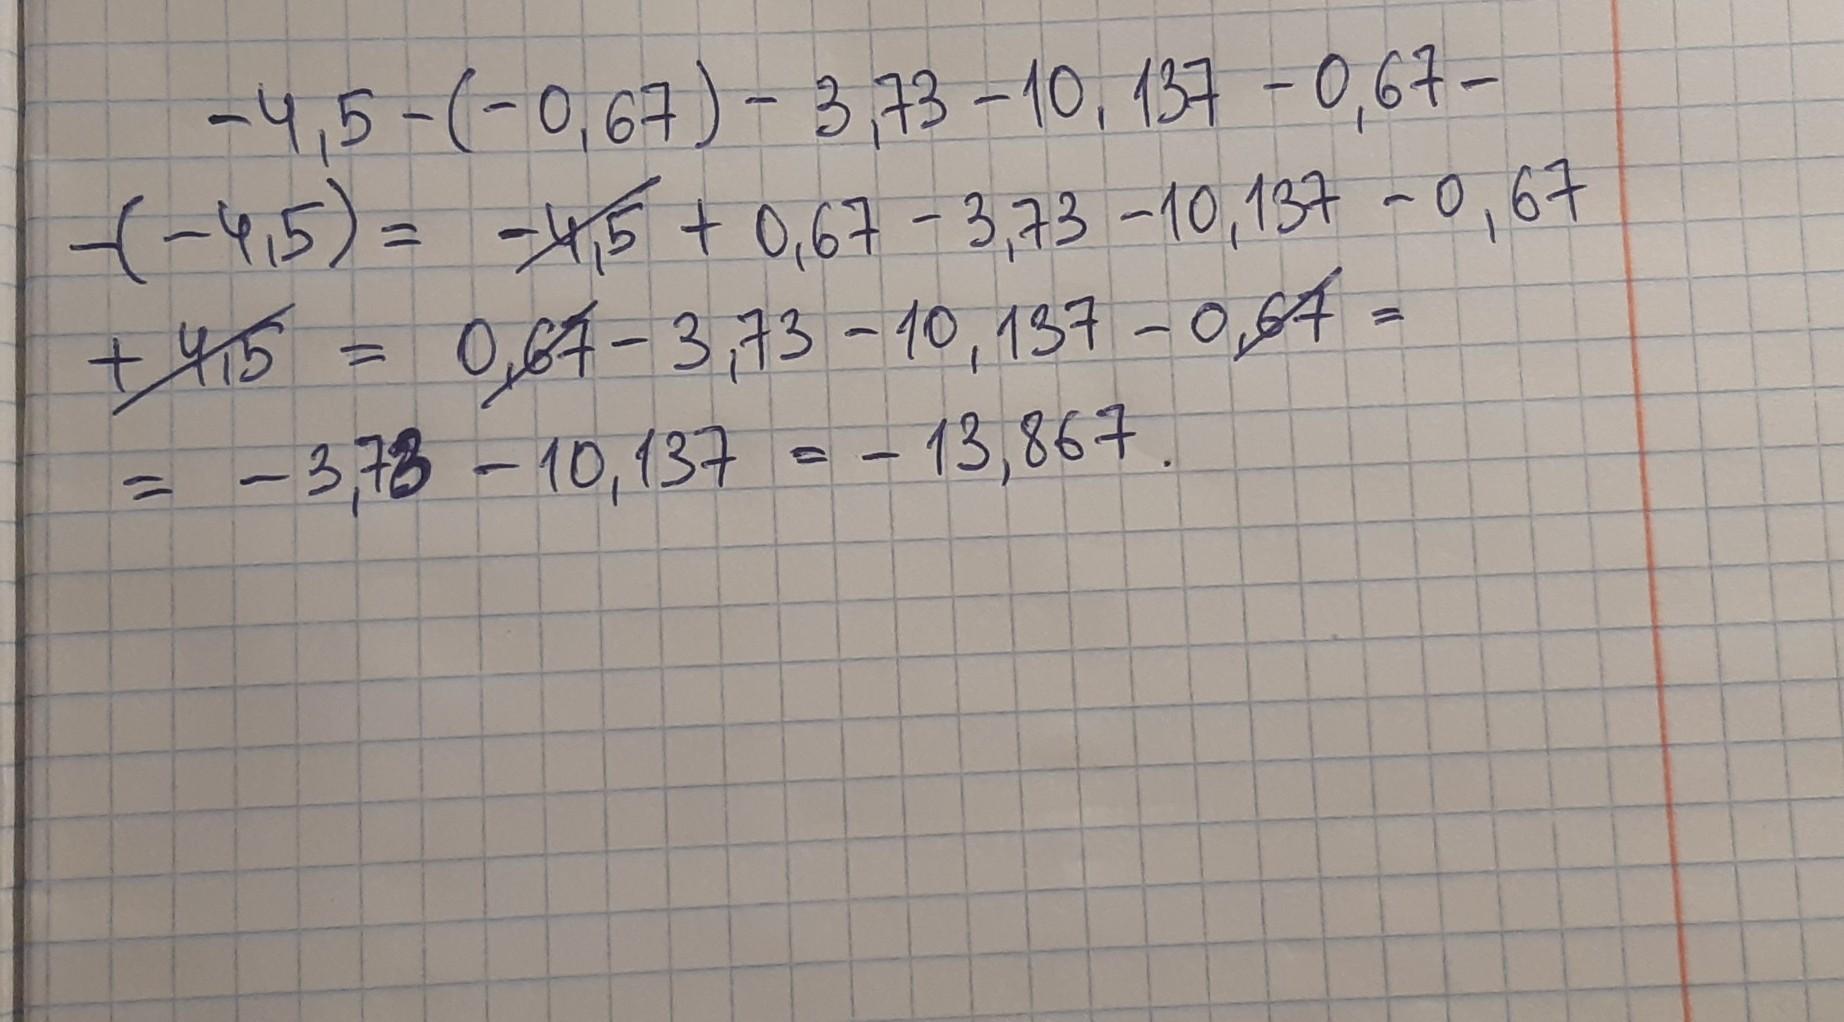 -4,5-(-0,67)-3,73-10,137-0,67-
-(-4,5)= -4,5+0,67-3,73-10,137-0,67
+4,5 = 0,67-3,73-10,137-0,67=
= -3,73-10,137=-13,867.